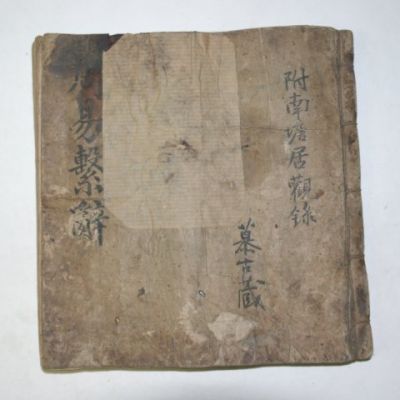 附南塘居觀錄
慕古藏
周易繫辭